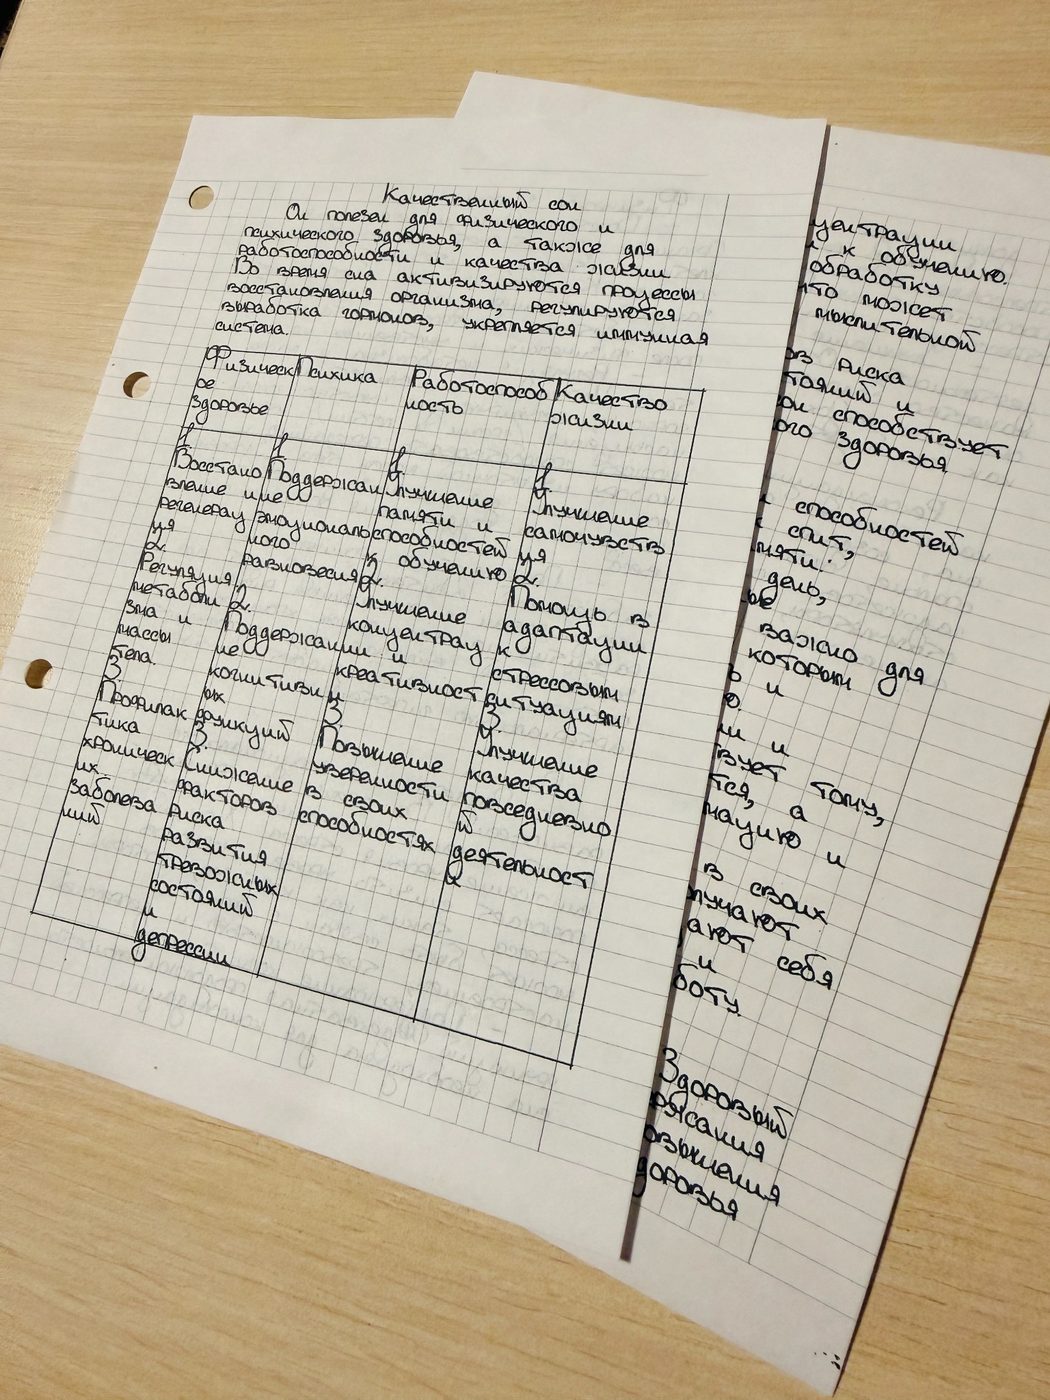 Качественный сон
Он полезен для физического и
психического здоровья, а также для
работоспособности и качества жизни
Во время сна активизируются процессы
восстановления организма, регулируются
выработка гормонов, укрепляется иммунная
система.
Физическ
ое
здоровье
Психика
Работоспособ
ность
Качество
жизни
1.
Восстано
вление и
регенерац
ия
2.
Регуляция
метаболи
зма и
массы
тела.
3
Профилак
тика
хроническ
их
заболева
ний
1.
Поддержан
ие
эмоциональ
ного
равновесия
2.
Поддержан
ие
когнитивн
ых
функций
3.
Снижение
факторов
риска
развития
тревожных
состояний
и
депрессии
1.
Улучшение
памяти и
способностей
к обучению
2.
Улучшение
концентрац
ии и
креативност
и
3.
Повышение
уверенности
в своих
способностях
1.
Улучшение
самочувств
ия
2.
Помощь в
адаптации
к
стрессовым
ситуациям
3.
Улучшение
качества
повседневно
й
деятельност
и
центрации
и к обучению.
обработку
что может
мыслительной
ов риска
тояний и
он способствует
ого здоровья
способностей
спит,
мяти.
день,
ые
важно для
которым
ь и
о.
ии и
вует тому,
тся, а
мацию и
в своих
лучают
ают себя
и
боту.
Здоровый
ржания
овышения
доровья